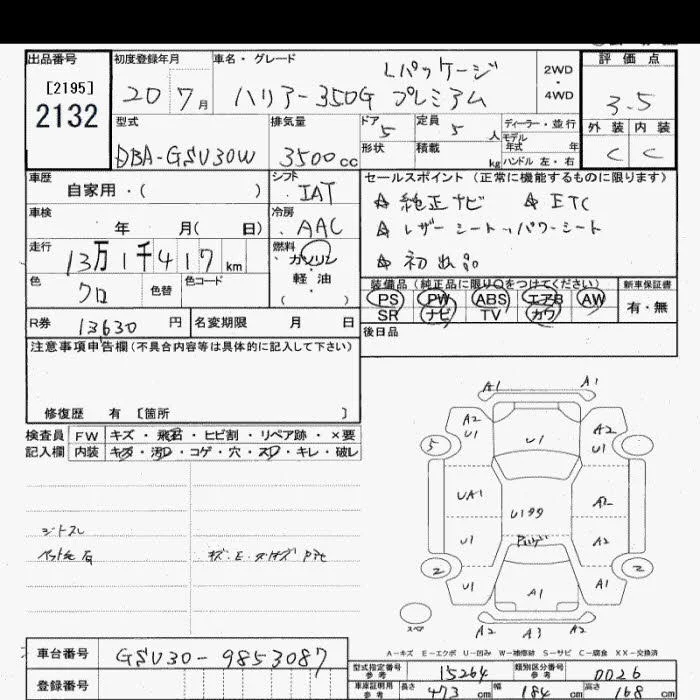 出品番号 初度登録年月 車名・グレード 評価点
[2195]
2132
20 7月
Lパッケージ
ハリアー350G プレミアム
2WD
・
4WD
3.5
外装 内装
C C
型式 排気量 ドア 定員 ディーラー・並行
DBA-GSU30W 3500cc 5 5人
モデル年式 年
形状 積載 kg ハンドル 左・右
車歴 シフト セールスポイント (正常に機能するものに限ります)
自家用・( ) IAT
☆ 純正ナビ ☆ ETC
車検 冷房
年 月( 日) AAC
☆ レザーシート、パワーシート
走行 燃料
13万1千417km ガソリン
☆ 初出品
・
軽油
・
( )
色 色替 色コード
クロ
装備品 (純正品に限り○をつけてください) 新車保証書
PS PW ABS エアB AW 有・無
SR ナビ TV カワ
R券 13630円 名変期限 月 日
後日品
注意事項申告欄(不具合内容等は具体的に記入して下さい)
修復歴 有 [箇所 ]
検査員 FW キズ・飛石・ヒビ割・リペア跡・×要
記入欄 内装 キズ・汚レ・コゲ・穴・スレ・キレ・破レ
シートスレ
A1 A1
A2 A2
U1 U1 U1
5
UA1 U199 A2
U1 A2
2 2
U1 A1 A1
スペア
A2 A3 A2
A-キズ E-エクボ U-凹み W-補修跡 S-サビ C-腐食 XX-交換済
車台番号 GSU30-9853087
登録番号
型式指定番号 参考 15264 類別区分番号 参考 0026
車庫証明用 参考 長さ 473cm 幅 184cm 高さ 168cm